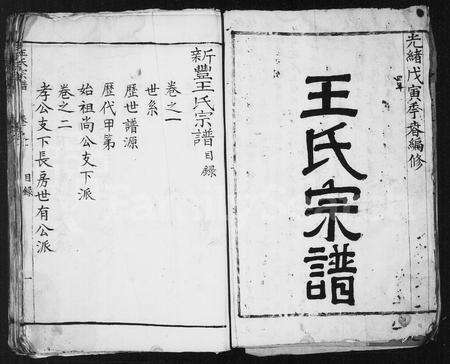 光緒戊寅季春編修
王氏宗譜
新豐王氏宗譜目錄
卷之一
世系
歷世譜源
歷代甲第
始祖尚公支下派
卷之二
孝公支下長房世有公派
王氏宗譜
目錄
一